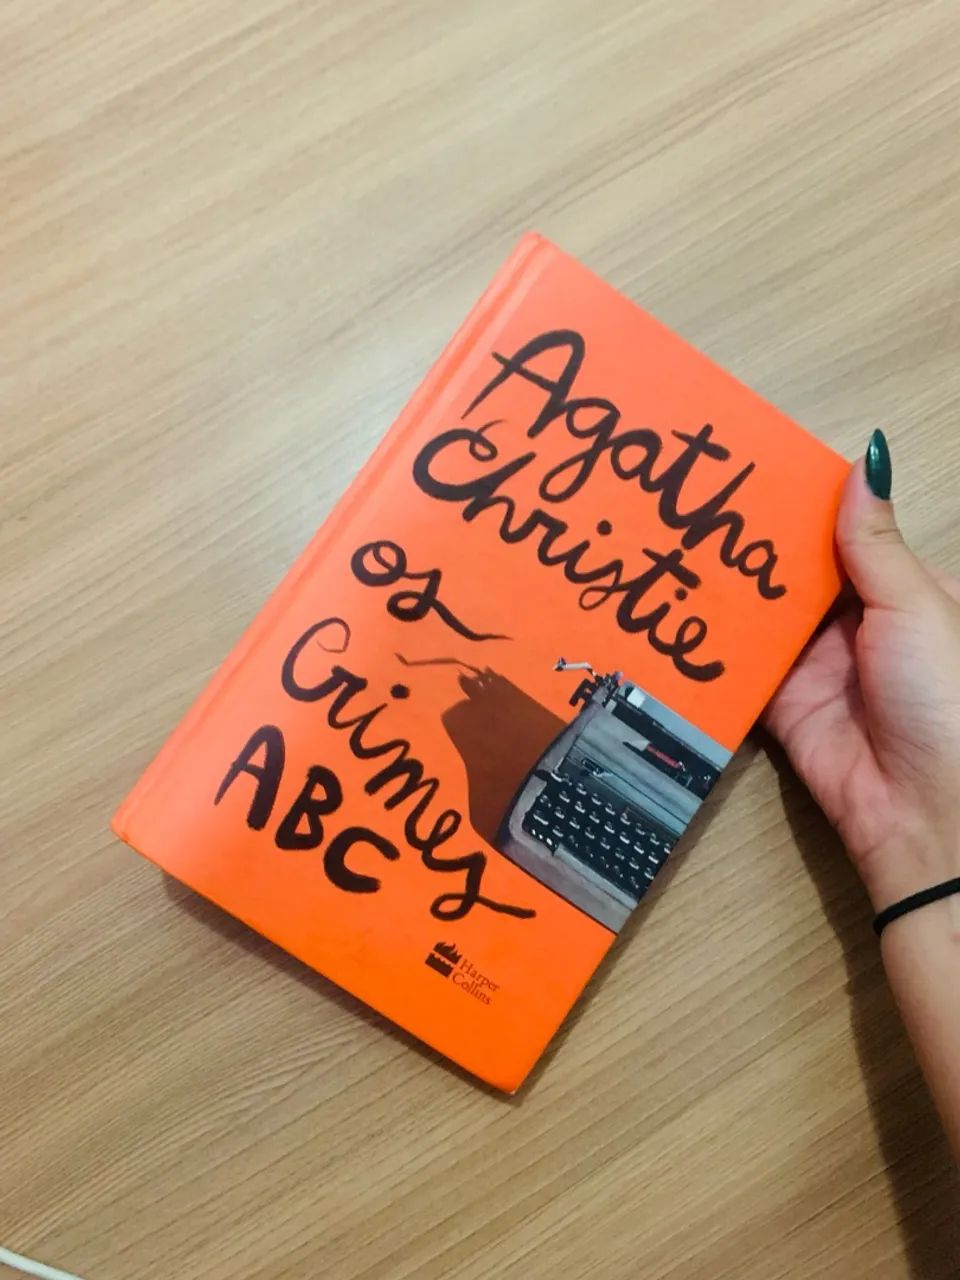 Agatha
Christie
os
Crimes
ABC
Harper
Collins